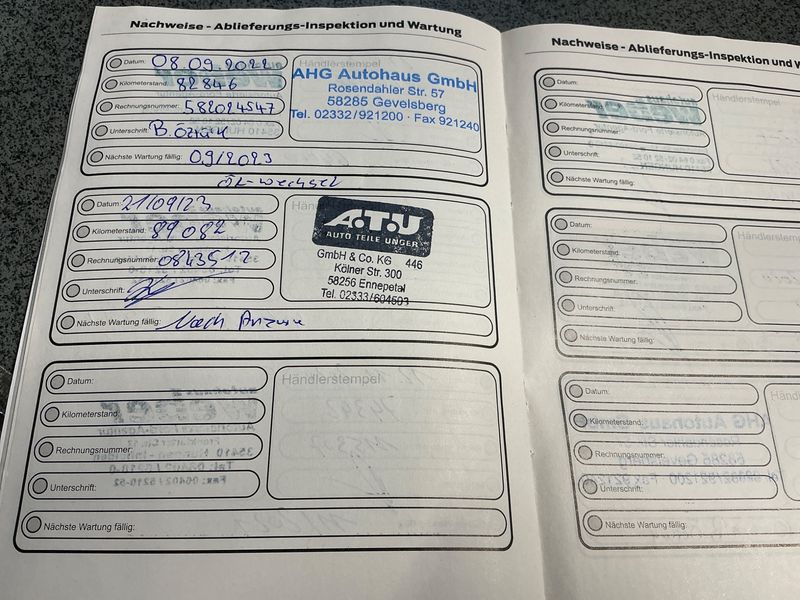 Nachweise - Ablieferungs-Inspektion und Wartung
Datum: 08.09.2022
Kilometerstand: 82846
Rechnungsnummer: 582024547
Unterschrift: B. Öztürk
Nächste Wartung fällig: 09/2023
Händlerstempel
AHG Autohaus GmbH
Rosendahler Str. 57
58285 Gevelsberg
Tel. 02332/921200 · Fax 921240
Öl-wechsel
Datum: 21/09/23
Kilometerstand: 89082
Rechnungsnummer: 0843512
Unterschrift:
Nächste Wartung fällig: Nach Anzeige
A.T.U
AUTO TEILE UNGER
GmbH & Co. KG 446
Kölner Str. 300
58256 Ennepetal
Tel. 02333/604503
Datum:
Kilometerstand:
Rechnungsnummer:
Unterschrift:
Nächste Wartung fällig:
Händlerstempel
Nachweise - Ablieferungs-Inspektion und W
Datum:
Kilometerstand:
Rechnungsnummer:
Unterschrift:
Nächste Wartung fällig:
Händlerstempel
Datum:
Kilometerstand:
Rechnungsnummer:
Unterschrift:
Nächste Wartung fällig:
Händlerstempel
Datum:
Kilometerstand:
Rechnungsnummer:
Unterschrift:
Nächste Wartung fällig: